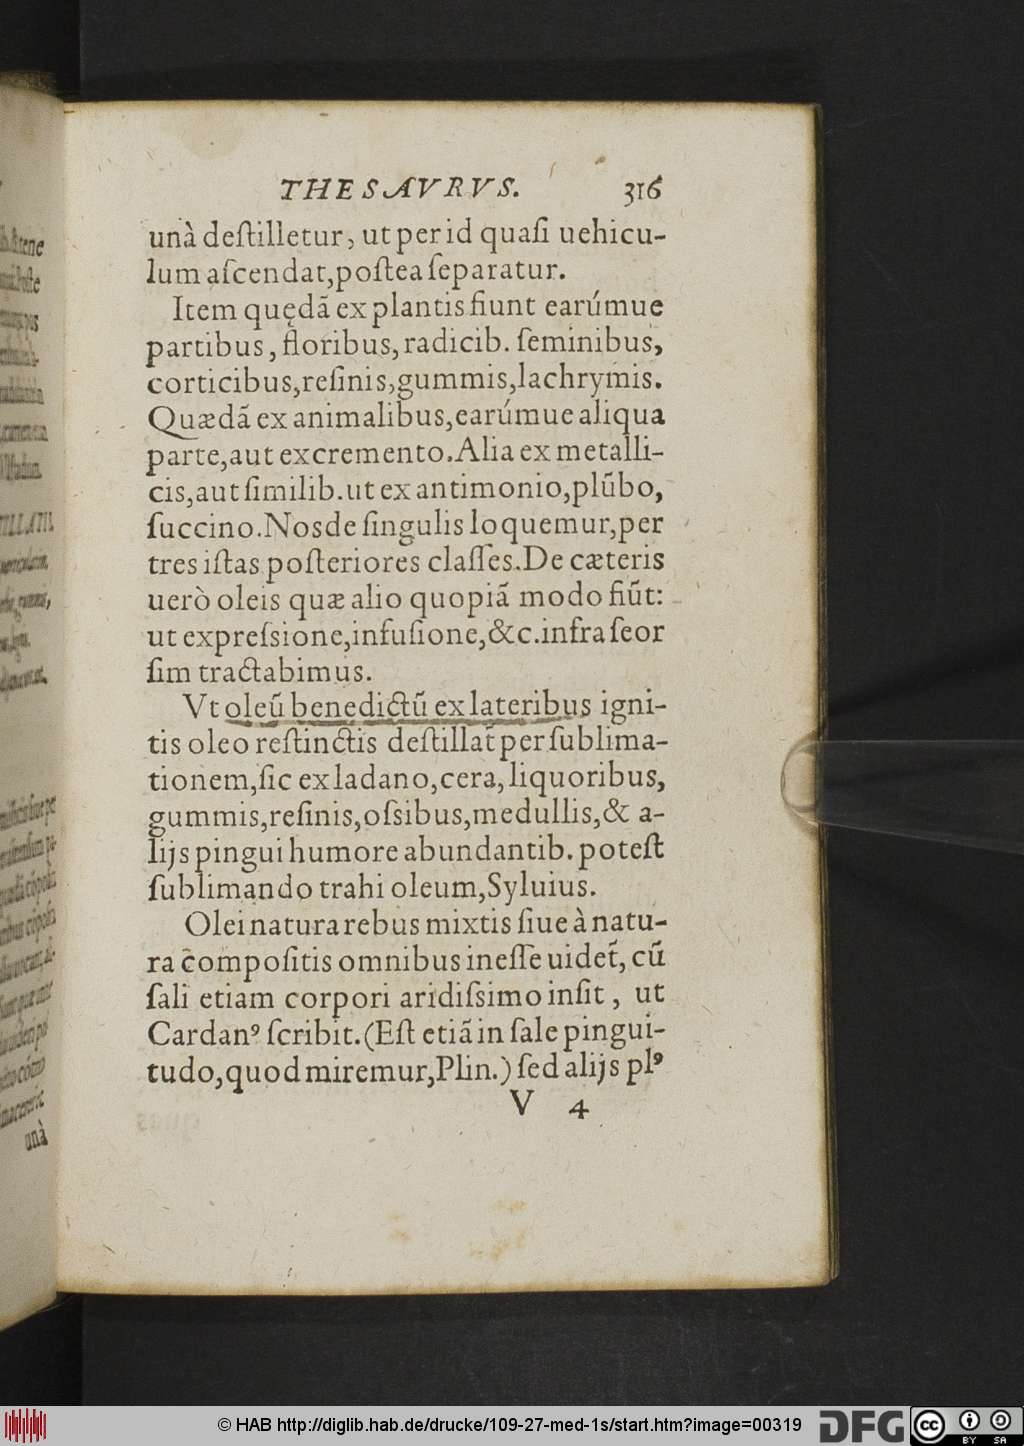 THESAVRVS. 316
unà deſtilletur, ut per id quaſi uehicu-
lum aſcendat, poſtea ſeparatur.
Item quędã ex plantis fiunt earúmue
partibus, floribus, radicib. ſeminibus,
corticibus, reſinis, gummis, lachrymis.
Quædã ex animalibus, earúmue aliqua
parte, aut excremento. Alia ex metalli-
cis, aut ſimilib. ut ex antimonio, plũbo,
ſuccino. Nos de ſingulis loquemur, per
tres iſtas poſteriores claſſes. De cæteris
uerò oleis quæ alio quopiã modo fiũt:
ut expreſsione, infuſione, &c. infra ſeor
ſim tractabimus.
Vt oleũ benedictũ ex lateribus igni-
tis oleo reſtinctis deſtillat̃ per ſublima-
tionem, ſic ex ladano, cera, liquoribus,
gummis, reſinis, oſsibus, medullis, & a-
lijs pingui humore abundantib. poteſt
ſublimando trahi oleum, Syluius.
Olei natura rebus mixtis ſiue à natu-
ra cõmpoſitis omnibus ineſſe uidet̃, cũ
ſali etiam corpori aridiſsimo inſit, ut
Cardanꝰ ſcribit. (Eſt etiã in ſale pingui-
tudo, quod miremur, Plin.) ſed alijs plꝰ
V 4
ſtene
unà
© HAB http://diglib.hab.de/drucke/109-27-med-1s/start.htm?image=00319 DFG cc BY SA